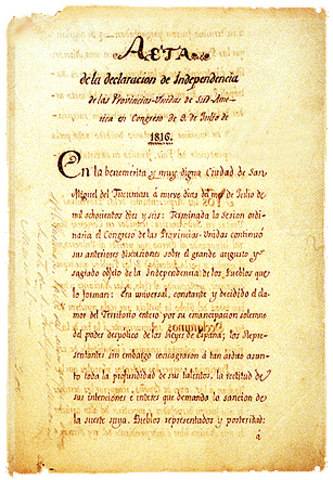 ACTA
de la declaracion de Independencia
de las Provincias-Unidas de Sud-Ame-
rica en Congreso de 9. de Julio de
1816.
En la benemerita y muy digna Ciudad de San
Miguel del Tucuman á nueve dias del mes de Julio de
mil ochocientos diez y seis: Terminada la Sesion ordi-
naria el Congreso de las Provincias-Unidas continuó
sus anteriores discusiones sobre el grande augusto y
sagrado objeto de la Independencia de los Pueblos que
lo forman: Era universal, constante y decidido el cla-
mor del Territorio entero por su emancipacion solemne
del poder despotico de los Reyes de España; los Repre-
sentantes sin embargo consagraron á tan arduo asun-
to toda la profundidad de sus talentos, la rectitud de
sus intenciones é interes que demanda la sancion de
la suerte suya, Pueblos representados y posteridad:
á